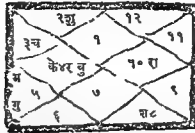 २शु १२
३च १ ११
के४र बु १०रा
म
गु ५ ७ ९
६ श८